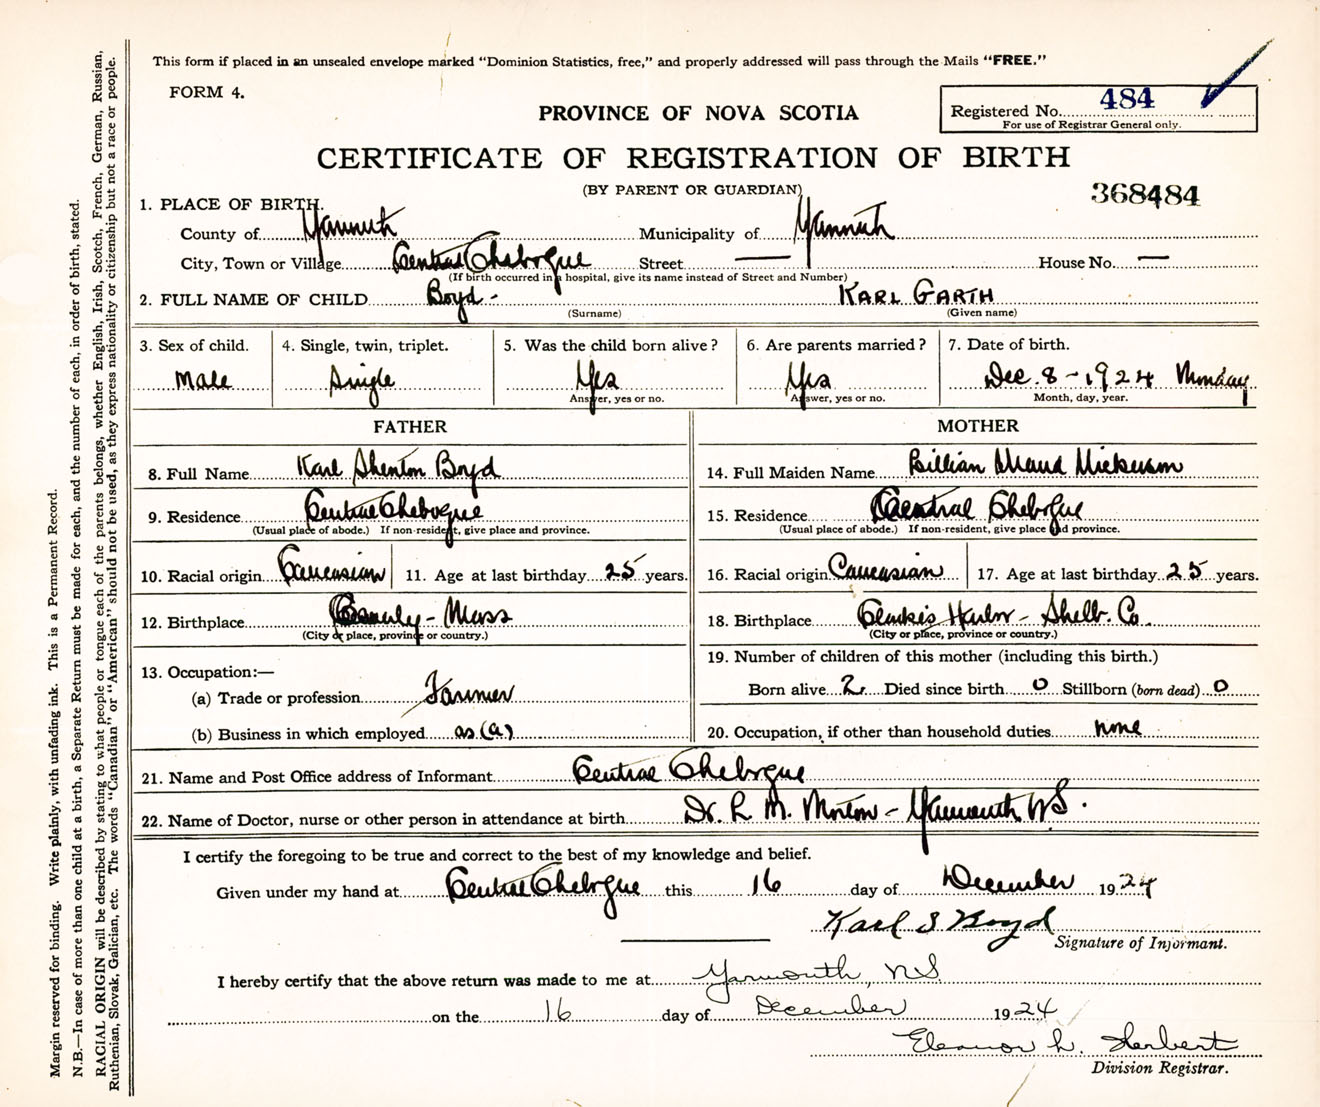 This form if placed in an unsealed envelope marked "Dominion Statistics, free," and properly addressed will pass through the Mails "FREE."
FORM 4.
Registered No. 484
For use of Registrar General only.
PROVINCE OF NOVA SCOTIA
CERTIFICATE OF REGISTRATION OF BIRTH
(BY PARENT OR GUARDIAN)
368484
1. PLACE OF BIRTH.
County of Yarmouth Municipality of Yarmouth
City, Town or Village Central Chebogue Street — House No. —
(If birth occurred in a hospital, give its name instead of Street and Number)
2. FULL NAME OF CHILD Boyd - KARL GARTH
(Surname) (Given name)
3. Sex of child. 4. Single, twin, triplet. 5. Was the child born alive? 6. Are parents married? 7. Date of birth.
Male Single Yes Yes Dec. 8 - 1924 Monday
Answer, yes or no. Answer, yes or no. Month, day, year.
FATHER MOTHER
8. Full Name Karl Shenton Boyd 14. Full Maiden Name Lillian Maud Nickerson
9. Residence Central Chebogue 15. Residence Central Chebogue
(Usual place of abode.) If non-resident, give place and province. (Usual place of abode.) If non-resident, give place and province.
10. Racial origin Caucasian 11. Age at last birthday 25 years. 16. Racial origin Caucasian 17. Age at last birthday 25 years.
12. Birthplace Beverly - Mass 18. Birthplace Clarks Harbor - Shelb. Co.
(City or place, province or country.) (City or place, province or country.)
13. Occupation:— 19. Number of children of this mother (including this birth.)
(a) Trade or profession Farmer Born alive 2 Died since birth 0 Stillborn (born dead) 0
(b) Business in which employed as (a) 20. Occupation, if other than household duties none
21. Name and Post Office address of Informant Central Chebogue
22. Name of Doctor, nurse or other person in attendance at birth Dr. L. M. Morton - Yarmouth N.S.
I certify the foregoing to be true and correct to the best of my knowledge and belief.
Given under my hand at Central Chebogue this 16 day of December 1924
Karl S Boyd
Signature of Informant.
I hereby certify that the above return was made to me at Yarmouth, N.S.
on the 16 day of December 1924
Eleanor L. Herbert
Division Registrar.
Margin reserved for binding. Write plainly, with unfading ink. This is a Permanent Record.
N.B.—In case of more than one child at a birth, a Separate Return must be made for each, and the number of each, in order of birth, stated.
RACIAL ORIGIN will be described by stating to what people or tongue each of the parents belongs, whether English, Irish, Scotch, French, German, Russian,
Ruthenian, Slovak, Galician, etc. The words "Canadian" or "American" should not be used, as they express nationality or citizenship but not a race or people.